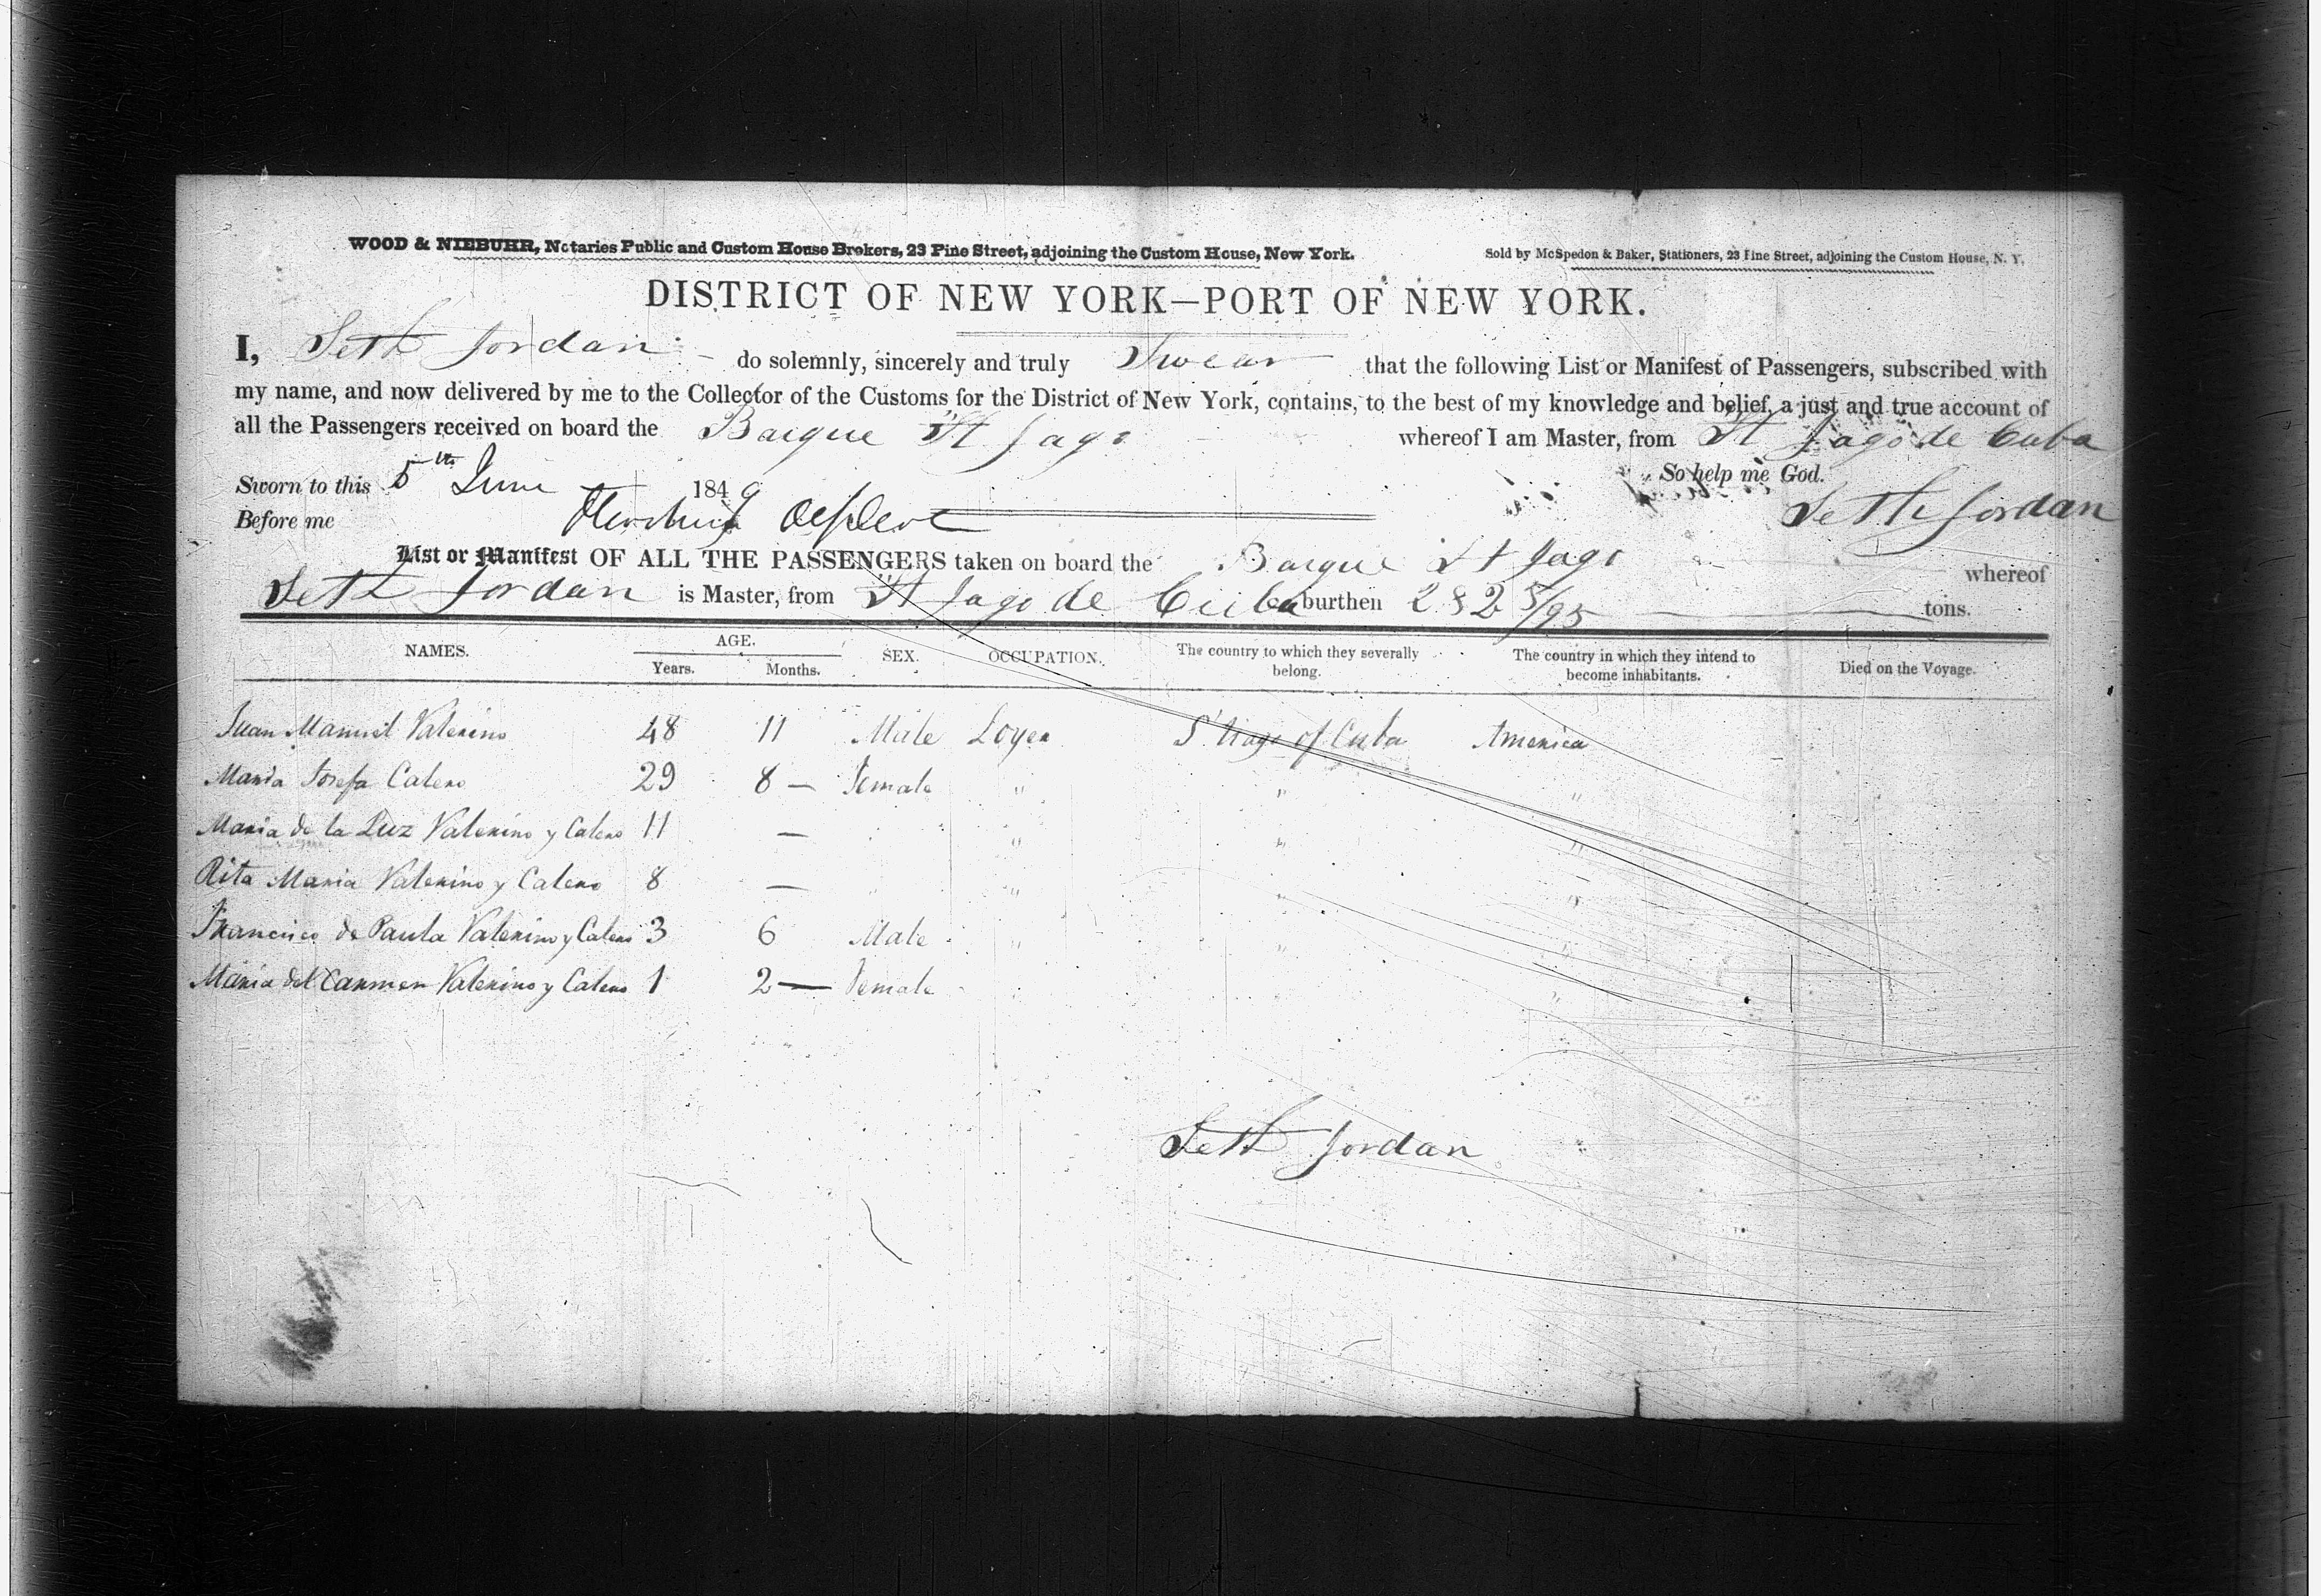 WOOD & NIEBUHR, Notaries Public and Custom House Brokers, 23 Pine Street, adjoining the Custom House, New York. Sold by McSpedon & Baker, Stationers, 23 Pine Street, adjoining the Custom House, N. Y.
DISTRICT OF NEW YORK—PORT OF NEW YORK.
I, Seth Jordan do solemnly, sincerely and truly Swear that the following List or Manifest of Passengers, subscribed with
my name, and now delivered by me to the Collector of the Customs for the District of New York, contains, to the best of my knowledge and belief, a just and true account of
all the Passengers received on board the Barque St Jago whereof I am Master, from St Jago de Cuba
So help me God.
Sworn to this 5th June 1849 Seth Jordan
Before me
List or Manifest OF ALL THE PASSENGERS taken on board the Barque St Jago whereof
Seth Jordan is Master, from St Jago de Cuba burthen 282 5/95 tons.
NAMES. AGE. Years. Months. SEX. OCCUPATION. The country to which they severally belong. The country in which they intend to become inhabitants. Died on the Voyage.
Juan Manuel Valerino 48 11 Male Loyer S'tiago of Cuba America
Maria Josefa Calero 29 8 — Female " " "
Maria de la Luz Valerino y Calero 11 — " " "
Rita Maria Valerino y Calero 8 — " " " "
Francisco de Paula Valerino y Calero 3 6 Male " " "
Maria del Carmen Valerino y Calero 1 2 — Female " " "
Seth Jordan